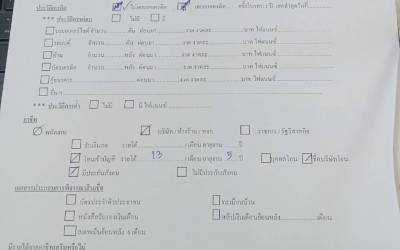 ประวัติเครดิต ไม่เคยขอเครดิต เคยขอเครดิต
*** ประวัติการผ่อน ไม่มี มี
มอเตอร์ไซค์ จำนวน คัน ผ่อนมา งวด งวดละ บาท ไฟแนนซ์
รถยนต์ จำนวน คัน ผ่อนมา งวด งวดละ บาท ไฟแนนซ์
บ้าน จำนวน หลัง ผ่อนมา งวด งวดละ บาท ไฟแนนซ์
บัตรเครดิต จำนวน ผ่อนมา งวด งวดละ บาท ไฟแนนซ์
กู้ธนาคาร ผ่อนมา งวด งวดละ บาท ไฟแนนซ์
อื่น ๆ
*** ประวัติการค้ำ ไม่มี มี ไฟแนนซ์
อาชีพ
พนักงาน บริษัท / ห้างร้าน / หจก. ราชการ / รัฐวิสาหกิจ
รับเงินสด รายได้ /เดือน อายุงาน ปี
โอนเข้าบัญชี รายได้ 13 /เดือน อายุงาน 5 ปี บุคคลโอน ชื่อบริษัทโอน
มีประกันสังคม ไม่มีประกันสังคม
เอกสารประกอบการพิจารณาสินเชื่อ
บัตรประจำตัวประชาชน ทะเบียนบ้าน
หนังสือรับรองเงินเดือน สลิปเงินเดือนย้อนหลัง เดือน
เดือนย้อนหลัง 6 เดือน